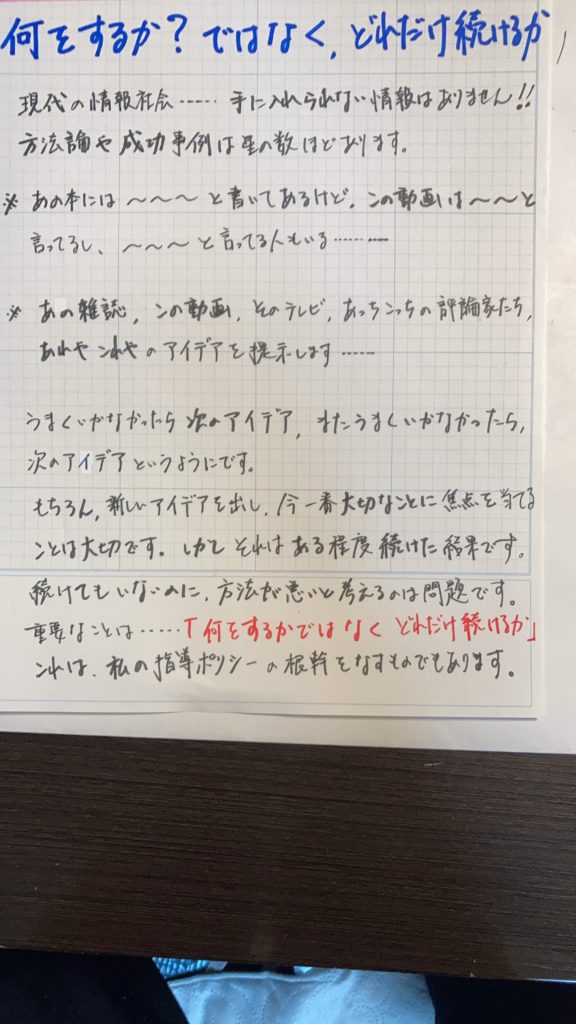 何をするか？ではなく、どれだけ続けるか
現代の情報社会‥‥‥ 手に入れられない情報はありません!!
方法論や成功事例は星の数ほどあります。
※ あの本には 〜〜〜 と書いてあるけど、この動画は〜〜と
言ってるし、〜〜〜 と言ってる人もいる‥‥‥‥
※ あの雑誌、この動画、そのテレビ、あっちこっちの評論家たち、
あれやこれやのアイデアを提示します‥‥‥
うまくいかなかったら 次のアイデア、またうまくいかなかったら、
次のアイデアというようにです。
もちろん、新しいアイデアを出し、今一番大切なことに焦点を当てる
ことは大切です。しかし それは ある程度 続けた結果です。
続けてもいないのに、方法が悪いと考えるのは問題です。
重要なことは‥‥‥「何をするかではなく どれだけ続けるか」
これは、私の指導ポリシーの根幹をなすものでもあります。